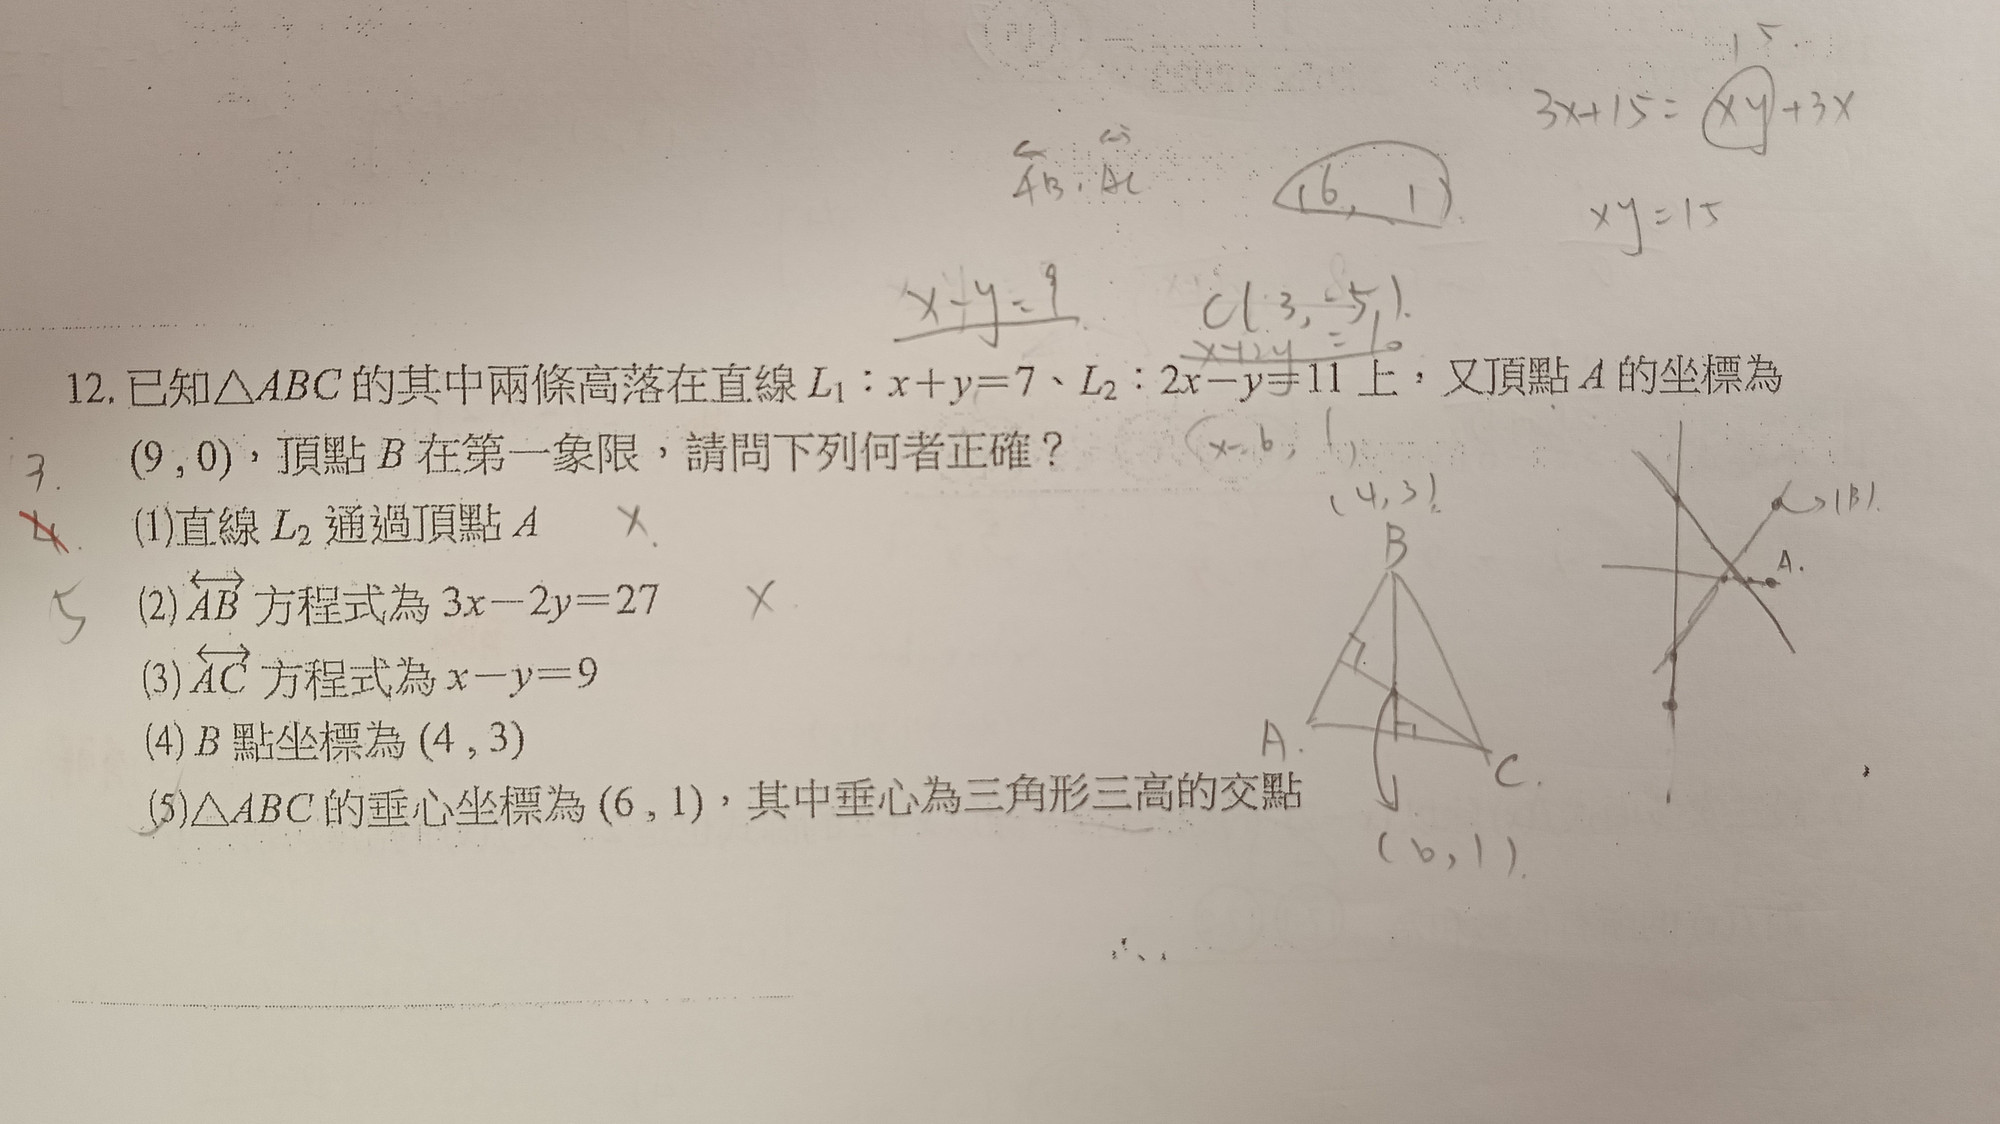 15
3x+15=xy+3x
AB, AC
(6, 1)
xy=15
x-y=9
C(3, -5)
x+2y=
12. 已知△ABC的其中兩條高落在直線 L₁：x+y=7、L₂：2x−y=11 上，又頂點 A 的坐標為
(9 , 0)，頂點 B 在第一象限，請問下列何者正確？
3.
4.
5
(1)直線 L₂ 通過頂點 A X
(2) AB 方程式為 3x−2y=27 X
(3) AC 方程式為 x−y=9
(4) B 點坐標為 (4 , 3)
(5)△ABC 的垂心坐標為 (6 , 1)，其中垂心為三角形三高的交點
(4,3)
B
A.
C.
(6,1)
(B)
A.